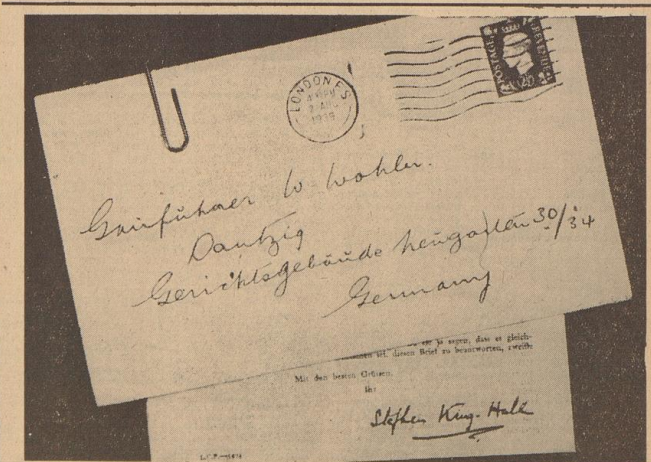 LONDON F.S.
1939
POSTAGE
REVENUE
Gauführer W. Wohler.
Dantzig
Gerichtsgebäude Neugarten 30/34
Germany
ja sagen, dass es gleich-
sei, diesen Brief zu beantworten,
Mit den besten Grüssen.
Ihr
Stephen King-Hall